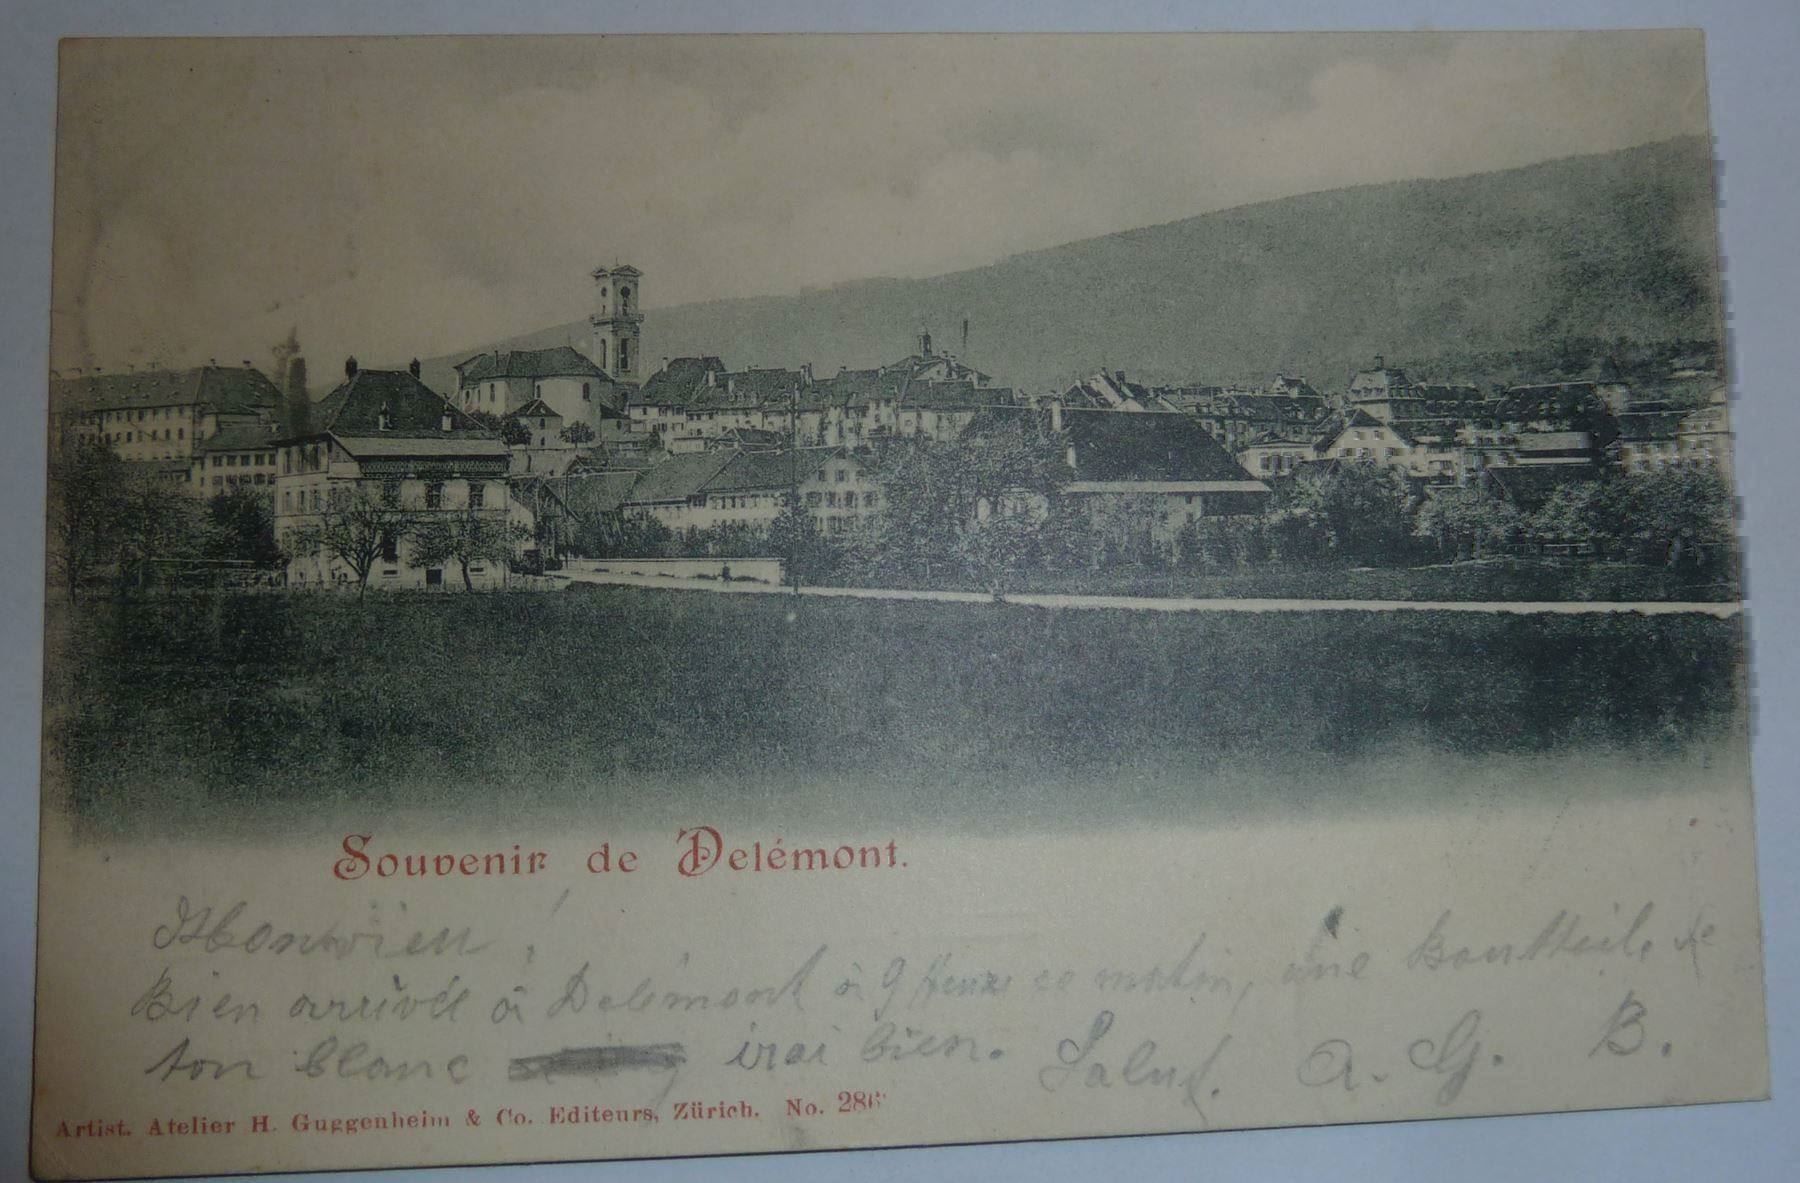 Souvenir de Delémont.
Bien arrivée à Delémont à 9 heures ce matin, une Boutteile de
ton blanc irai bien. Salut. A. G. B.
Artist. Atelier H. Guggenheim & Co. Editeurs, Zürich. No. 286